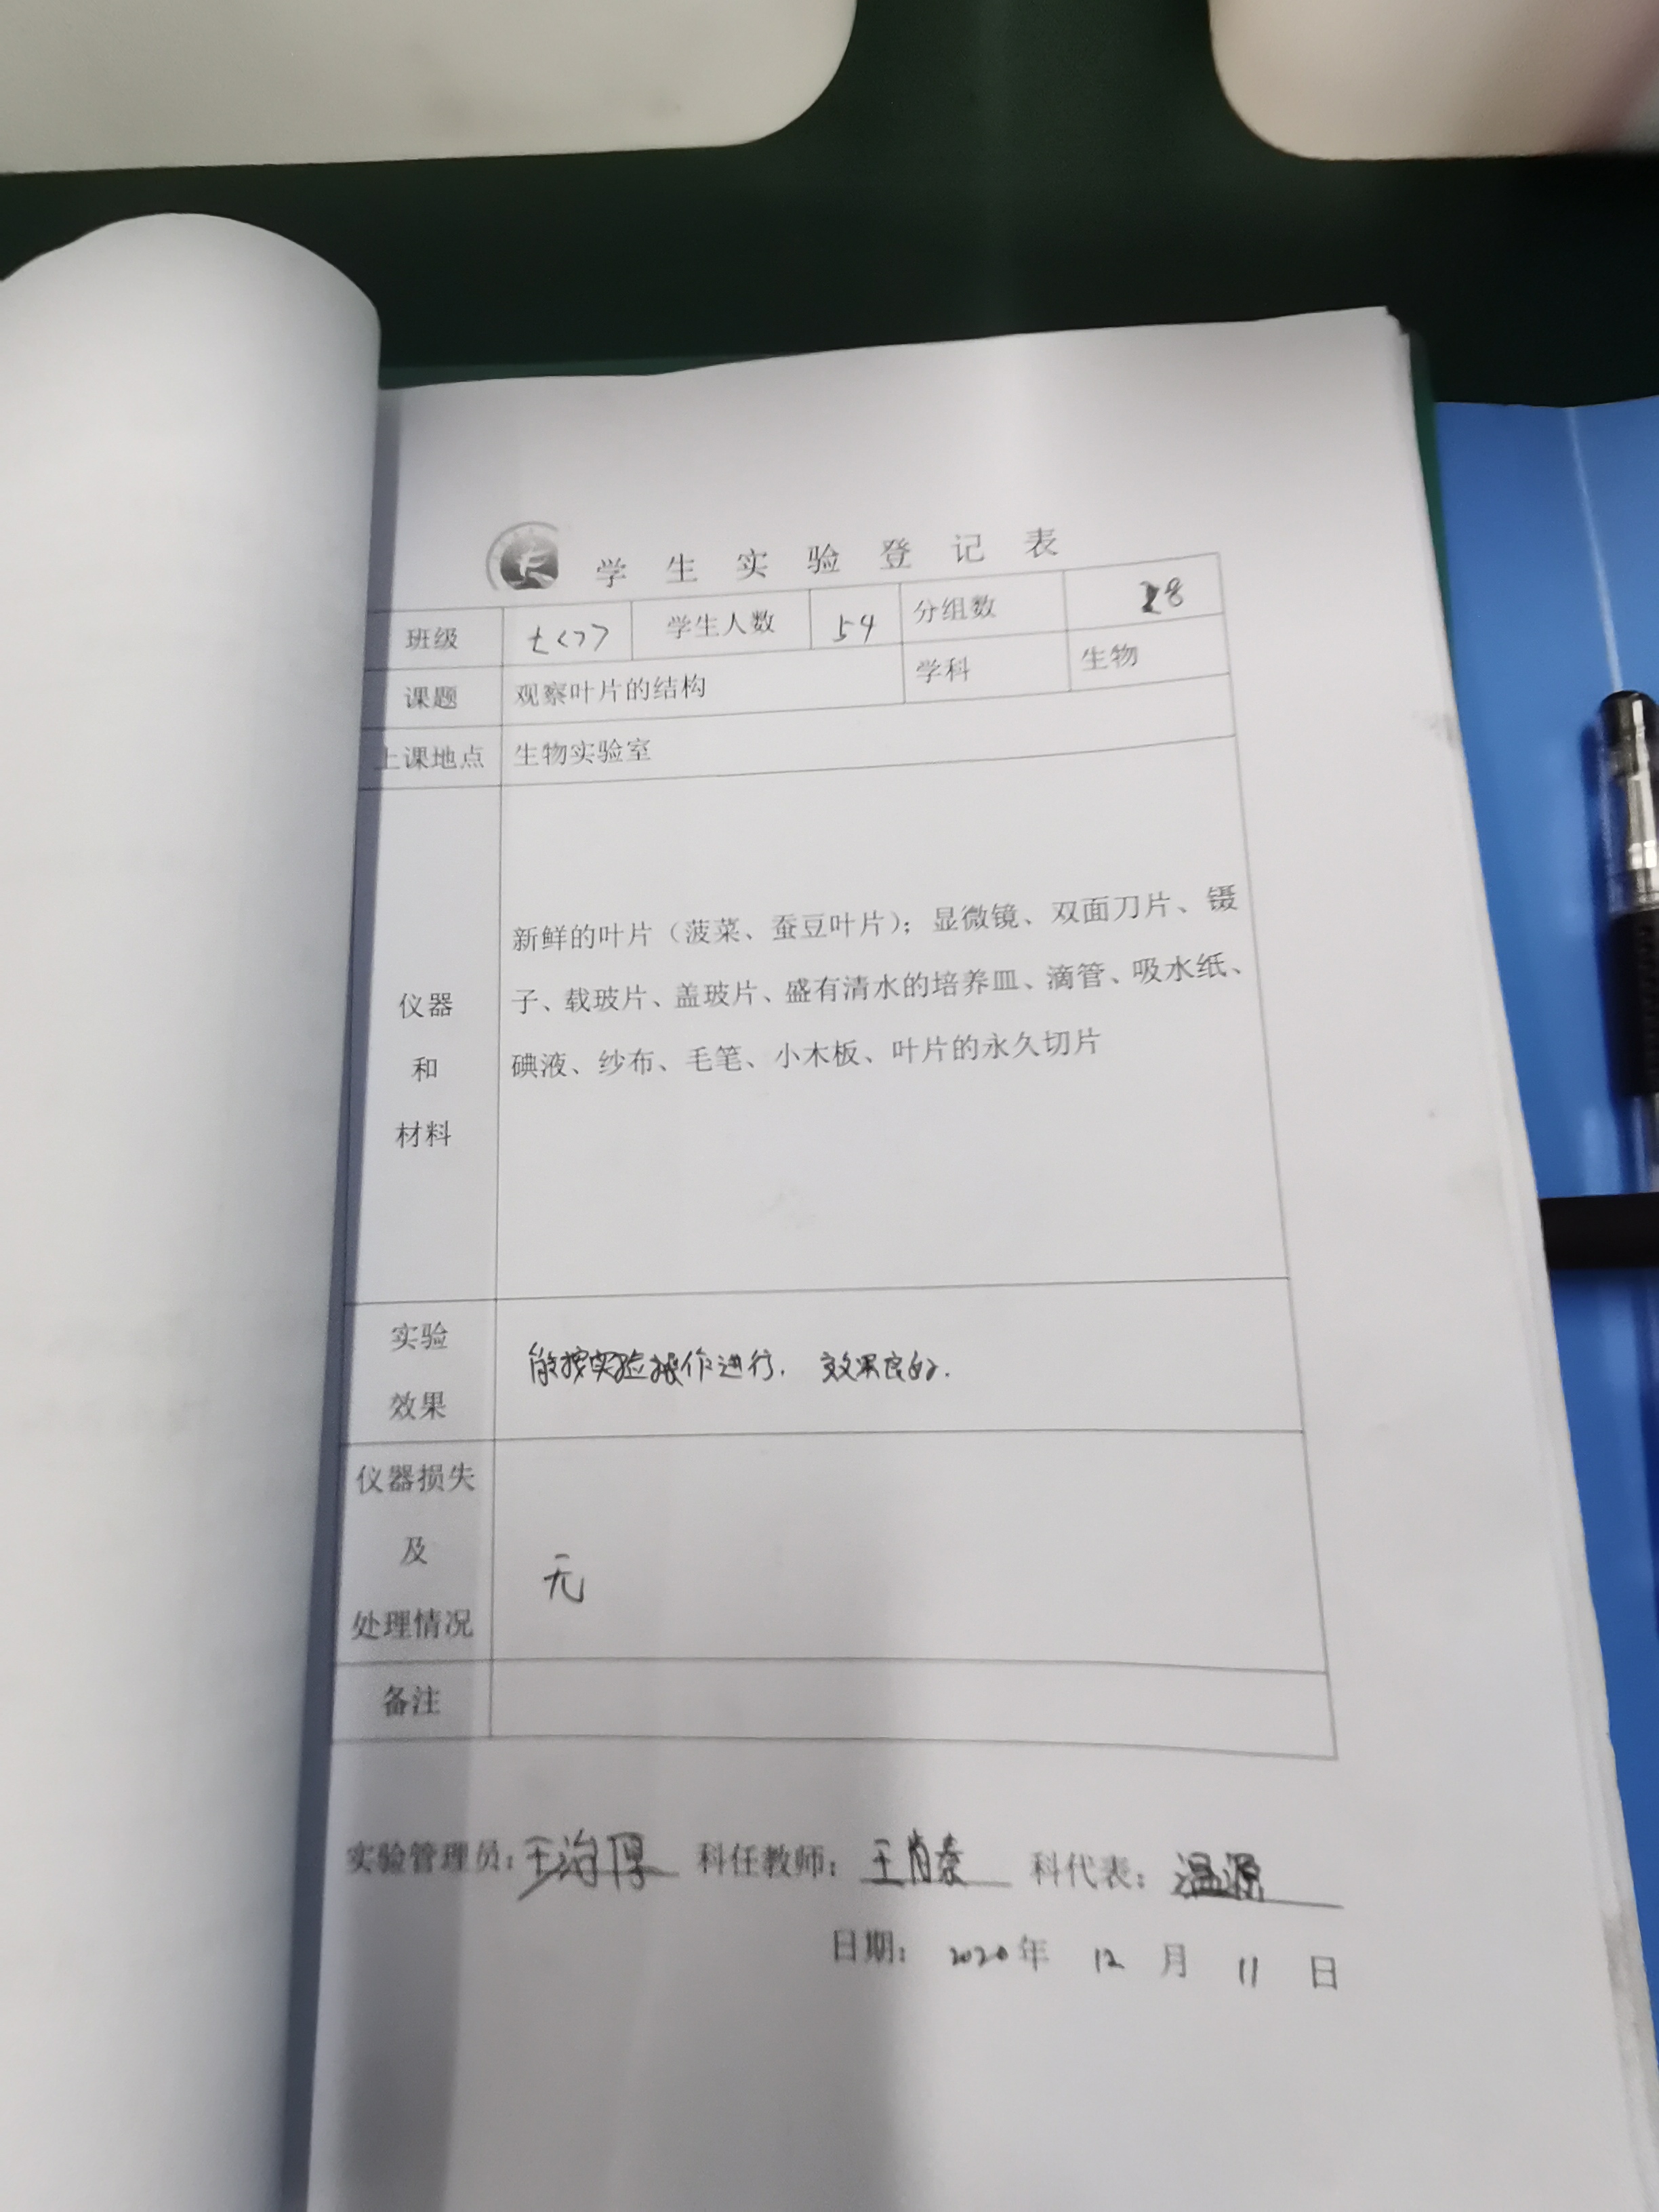 学生实验登记表
班级 七<7> 学生人数 54 分组数 28
课题 观察叶片的结构 学科 生物
上课地点 生物实验室
仪器
和
材料
新鲜的叶片（菠菜、蚕豆叶片）；显微镜、双面刀片、镊
子、载玻片、盖玻片、盛有清水的培养皿、滴管、吸水纸、
碘液、纱布、毛笔、小木板、叶片的永久切片
实验
效果
能按实验操作进行. 效果良好.
仪器损失
及
处理情况
无
备注
实验管理员: 科任教师: 王肖 科代表: 温源
日期: 2020年 12 月 11 日